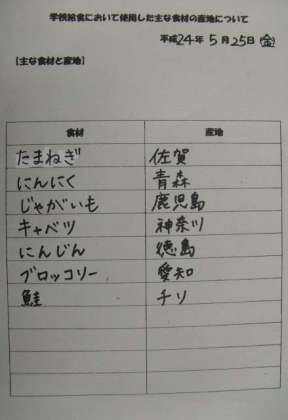 学校給食において使用した主な食材の産地について
平成24年 5月 25日(金)
【主な食材と産地】
食材 産地
たまねぎ 佐賀
にんにく 青森
じゃがいも 鹿児島
キャベツ 神奈川
にんじん 徳島
ブロッコリー 愛知
鮭 チリ